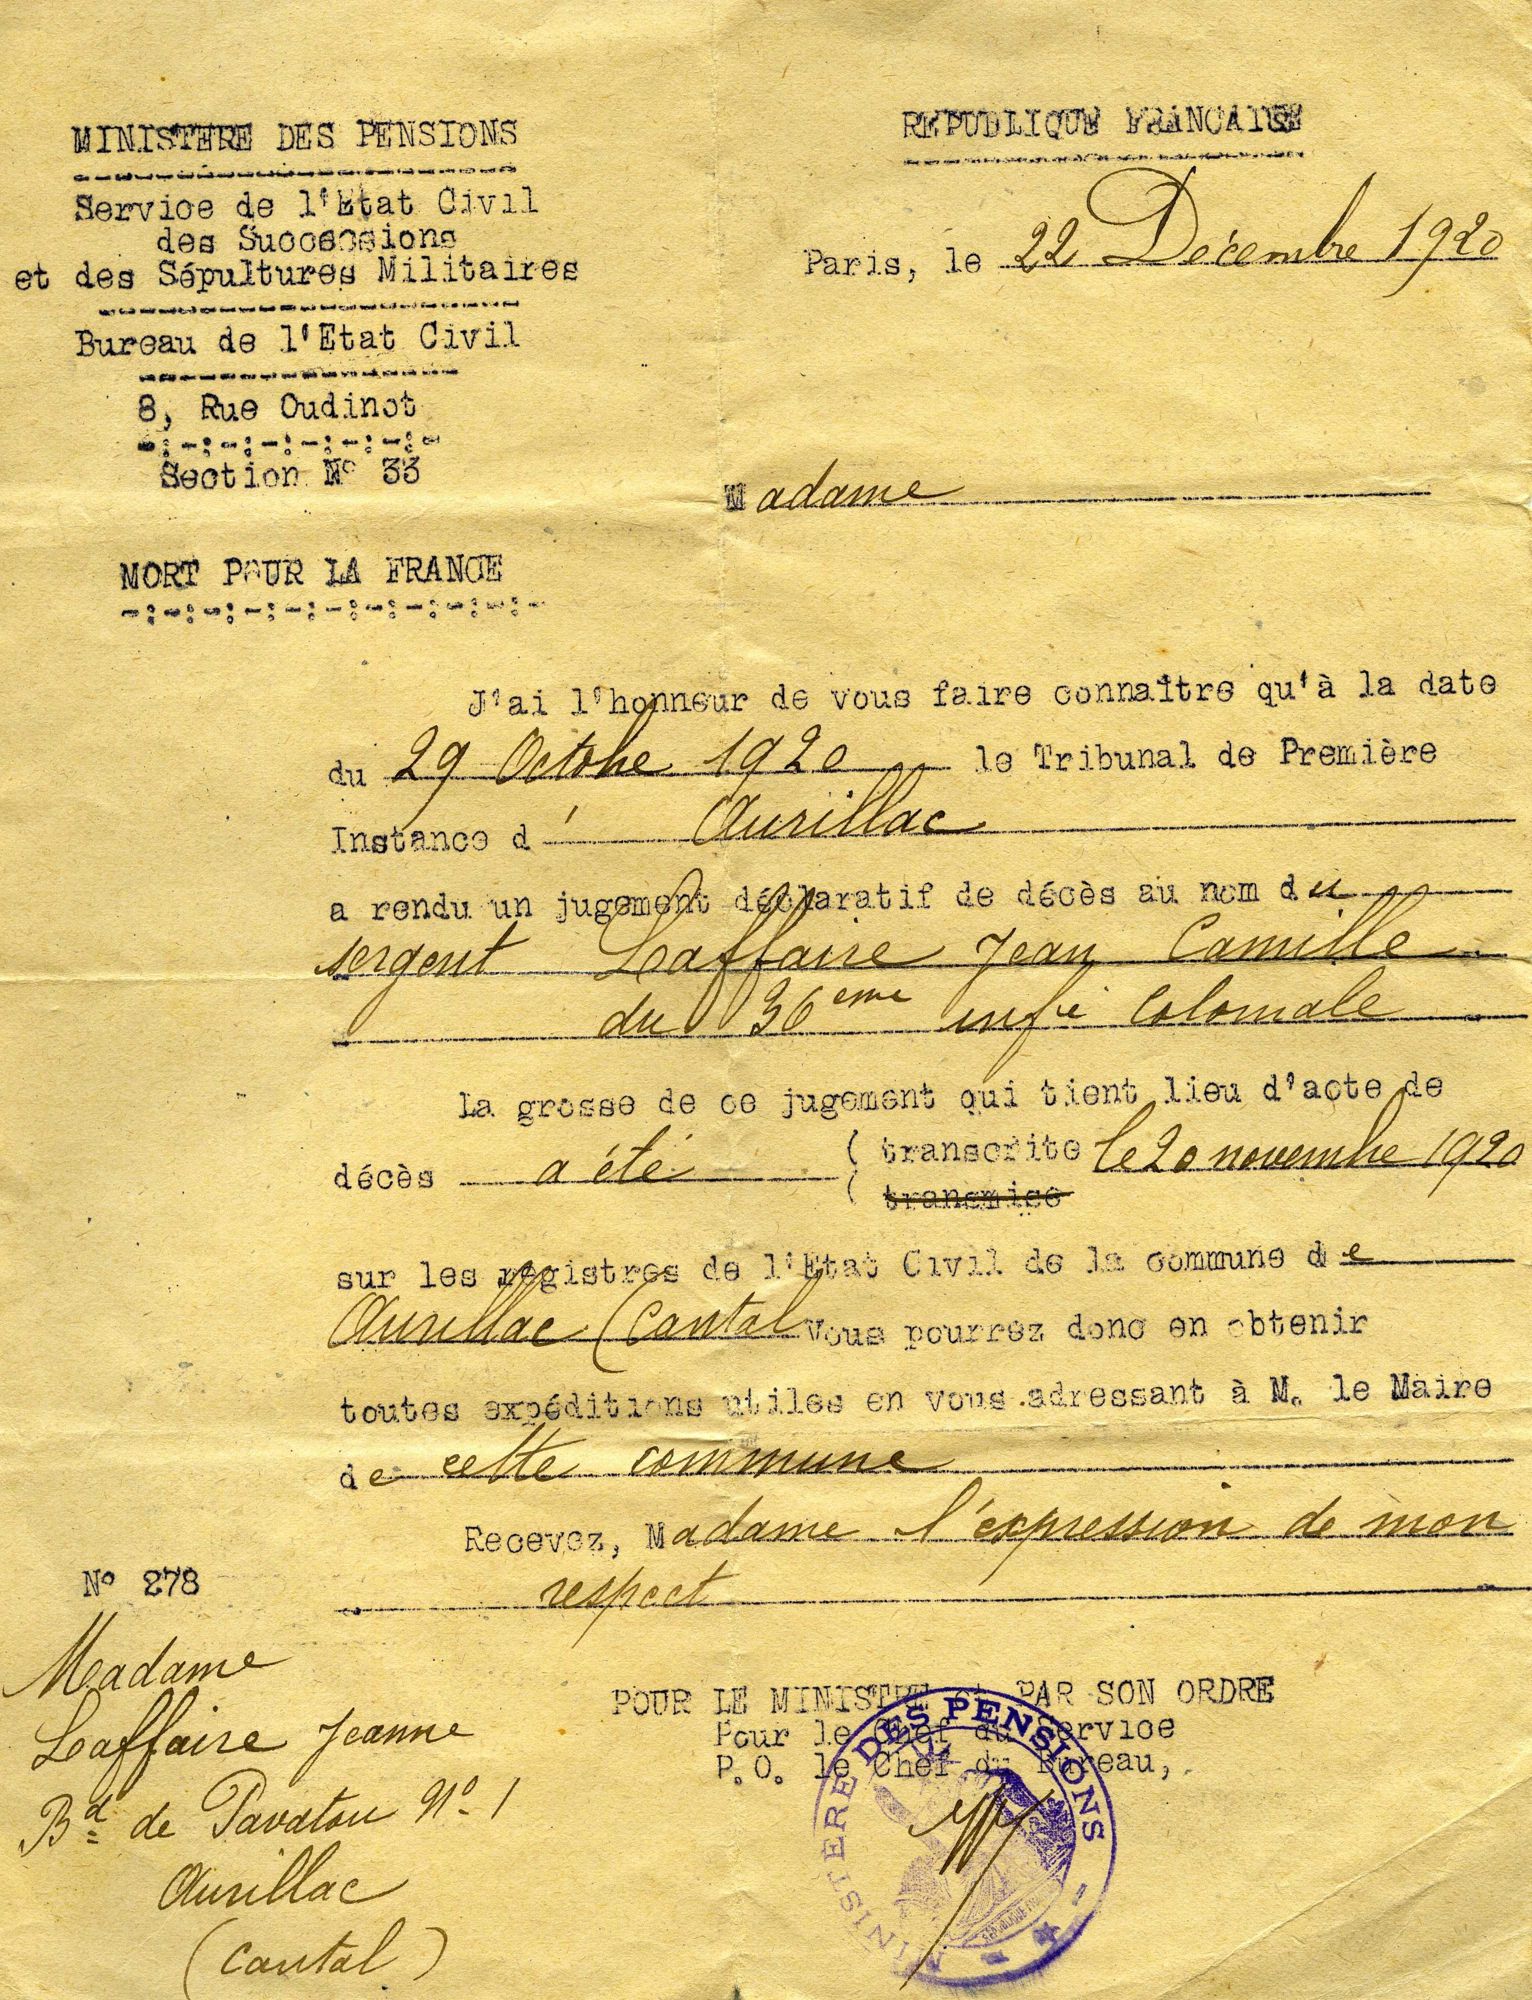 MINISTERE DES PENSIONS
Service de l'Etat Civil
des Successions
et des Sépultures Militaires
Bureau de l'Etat Civil
8, Rue Oudinot
Section N° 33
MORT POUR LA FRANCE
REPUBLIQUE FRANCAISE
Paris, le 22 Décembre 1920
Madame
J'ai l'honneur de vous faire connaître qu'à la date
du 29 Octobre 1920 le Tribunal de Première
Instance d' Aurillac
a rendu un jugement déclaratif de décès au nom du
sergent Laffaire Jean Camille
du 36eme infie Coloniale
La grosse de ce jugement qui tient lieu d'acte de
décès a été ( transcrite le 20 novembre 1920
( transmise
sur les registres de l'Etat Civil de la commune de
Aurillac (Cantal Vous pourrez donc en obtenir
toutes expéditions utiles en vous adressant à M. le Maire
de cette commune
Recevez, Madame l'expression de mon
respect
N° 278
Madame
Laffaire Jeanne
Bd de Pavatou N° 1
Aurillac
(Cantal)
POUR LE MINISTRE et PAR SON ORDRE
Pour le Chef du Service
P.O. le Chef du Bureau,
MINISTERE DES PENSIONS